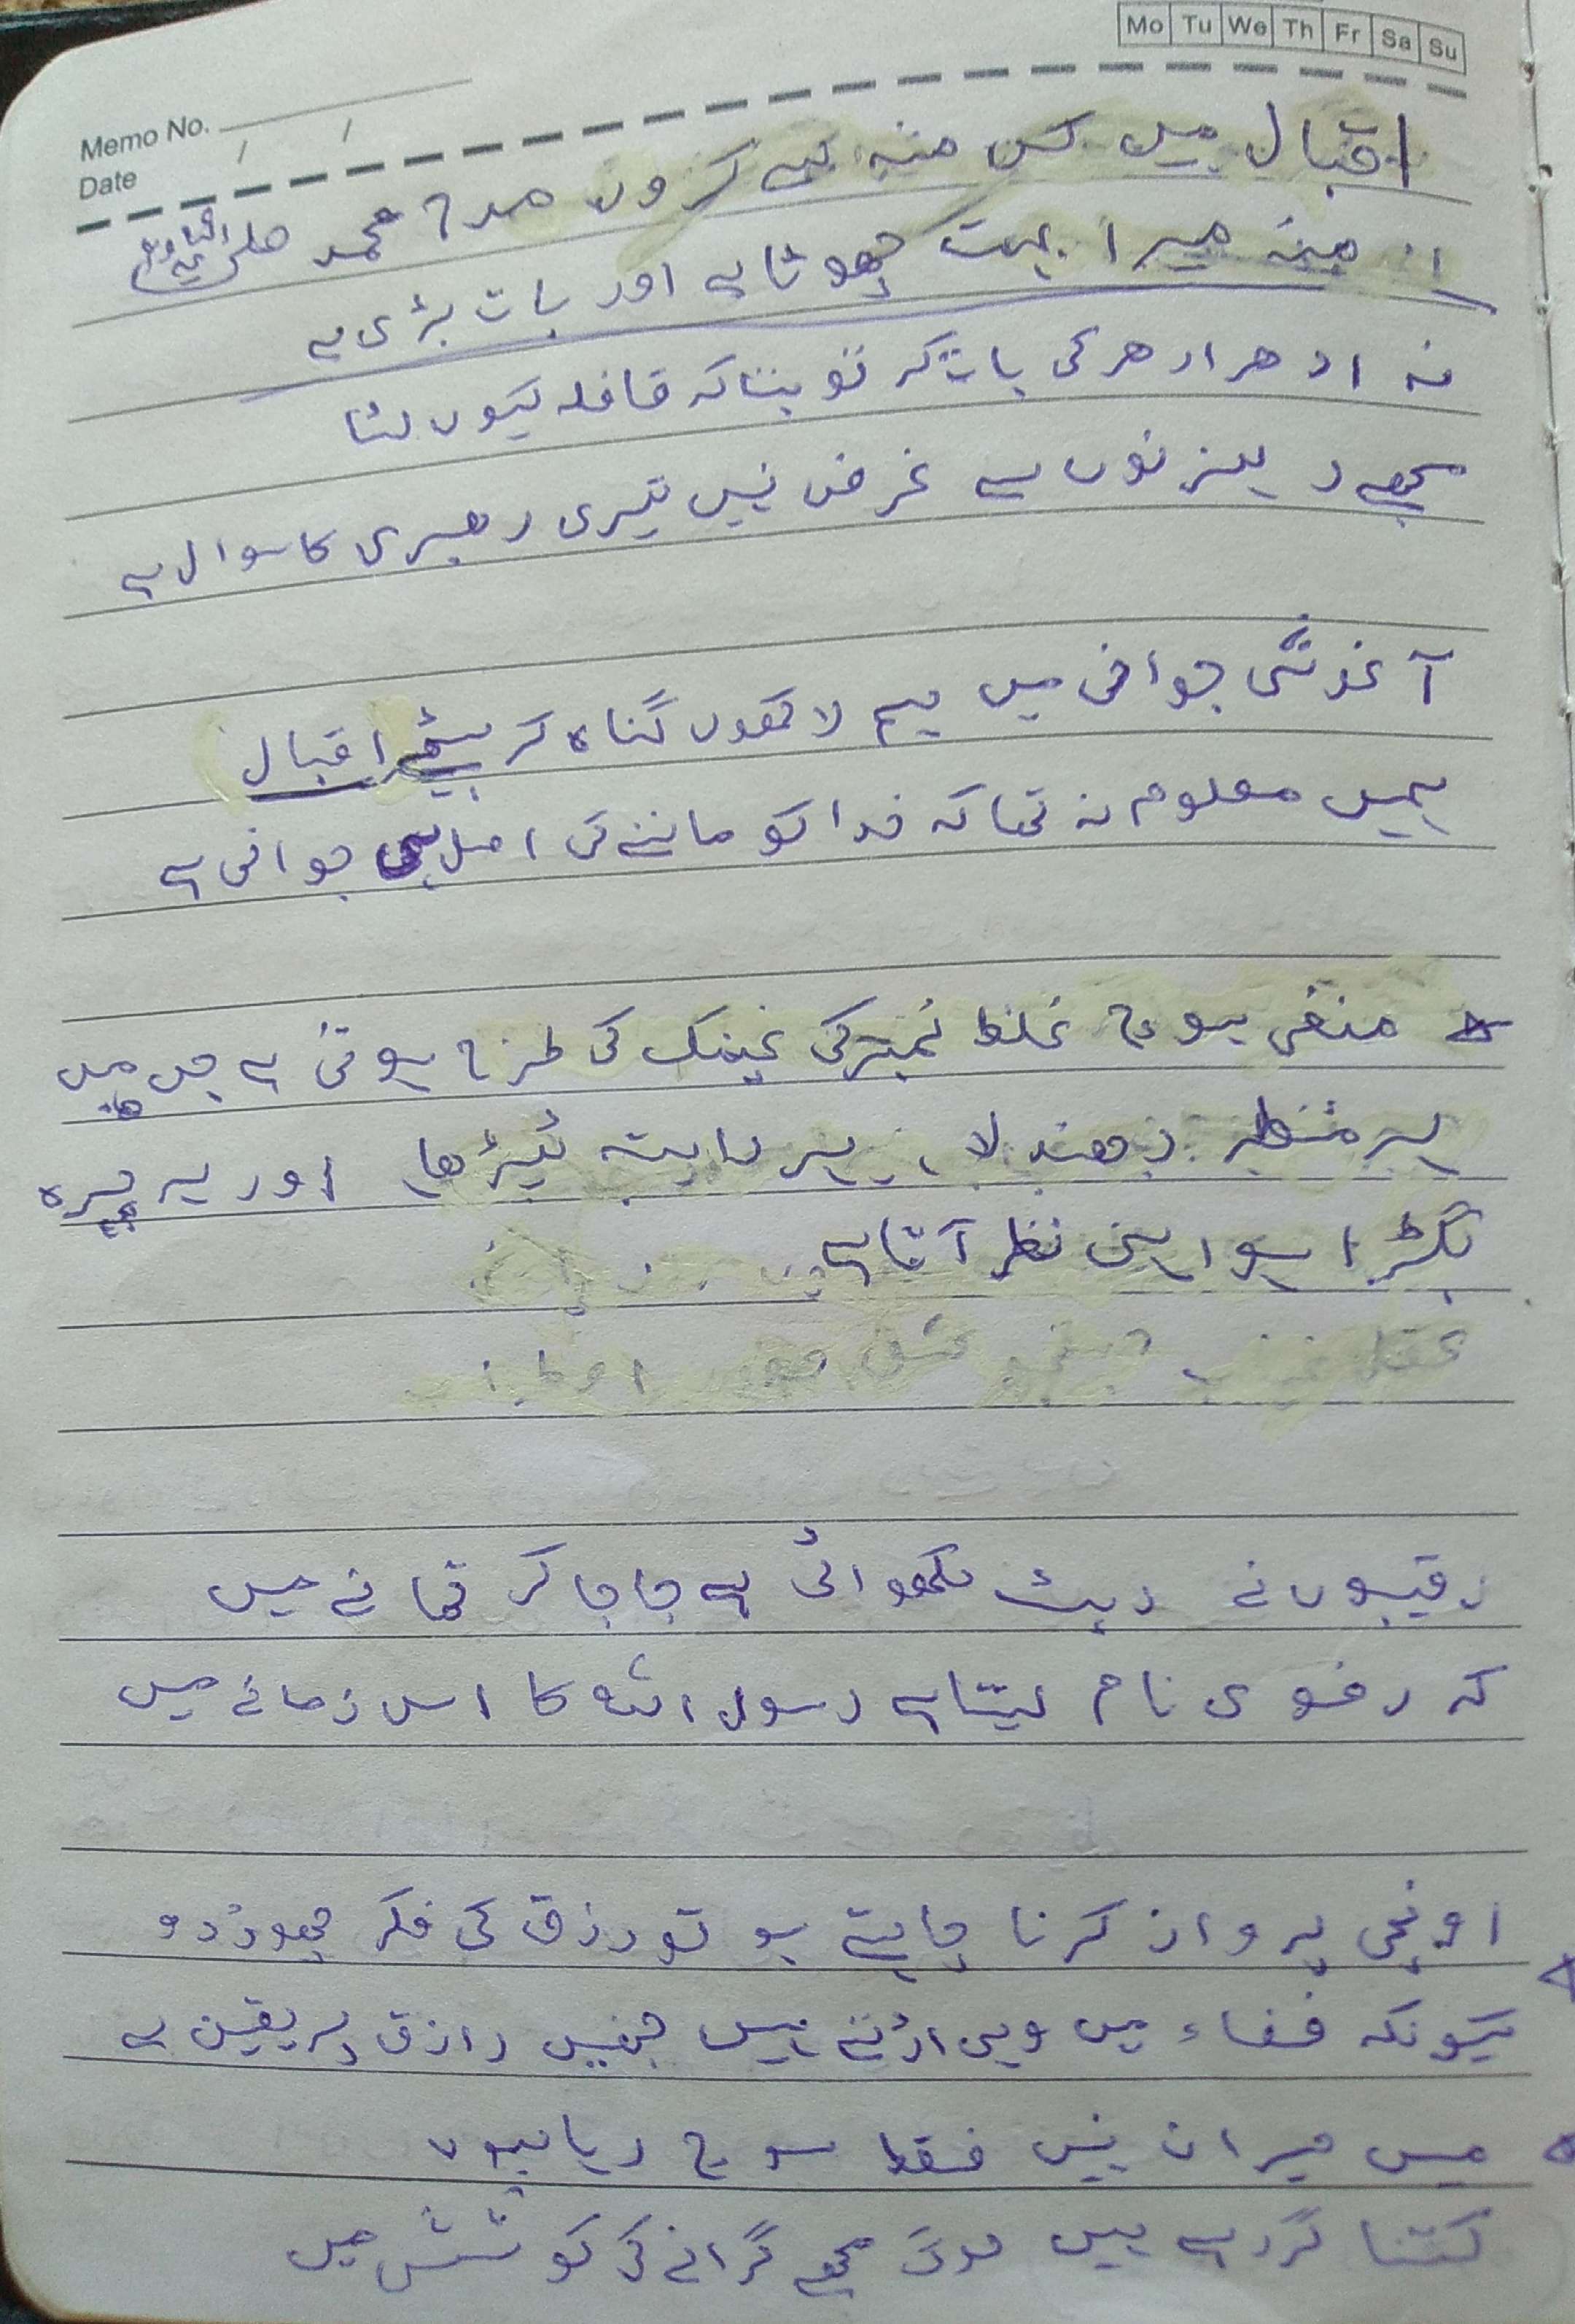 Mo Tu We Th Fr Sa Su
Memo No.
Date / /
اقبال میں کس منہ سے کروں مدح محمد صلی اللہ علیہ وسلم
منہ میرا بہت چھوٹا ہے اور بات بڑی ہے
نہ ادھر ادھر کی بات کر تو بتا کہ قافلہ کیوں لٹا
مجھے رہزنوں سے غرض نہیں تیری رہبری کا سوال ہے
آغوشی جوانی میں ہم لاکھوں گناہ کر بیٹھے اقبال
ہمیں معلوم نہ تھا کہ خدا کو ماننے کی اصل ہی جوانی ہے
منفی سوچ غلط نمبر کی عینک کی طرح ہوتی ہے جس میں
ہر منظر دھندلا، ہر راستہ ٹیڑھا اور ہر چہرہ
بگڑا ہوا ہی نظر آتا ہے
رقیبوں نے رپٹ لکھوائی ہے جا جا کر تھانے میں
کہ رضوی نام لیتا ہے رسول اللہ کا اس زمانے میں
اونچی پرواز کرنا چاہتے ہو تو رزق کی فکر چھوڑ دو
کیونکہ فضاء میں وہی اڑتے ہیں جنہیں رازق پر یقین ہے
میں حیران نہیں فقط سوچ رہا ہوں
کتنا گر رہے ہیں لوگ مجھے گرانے کی کوشش میں